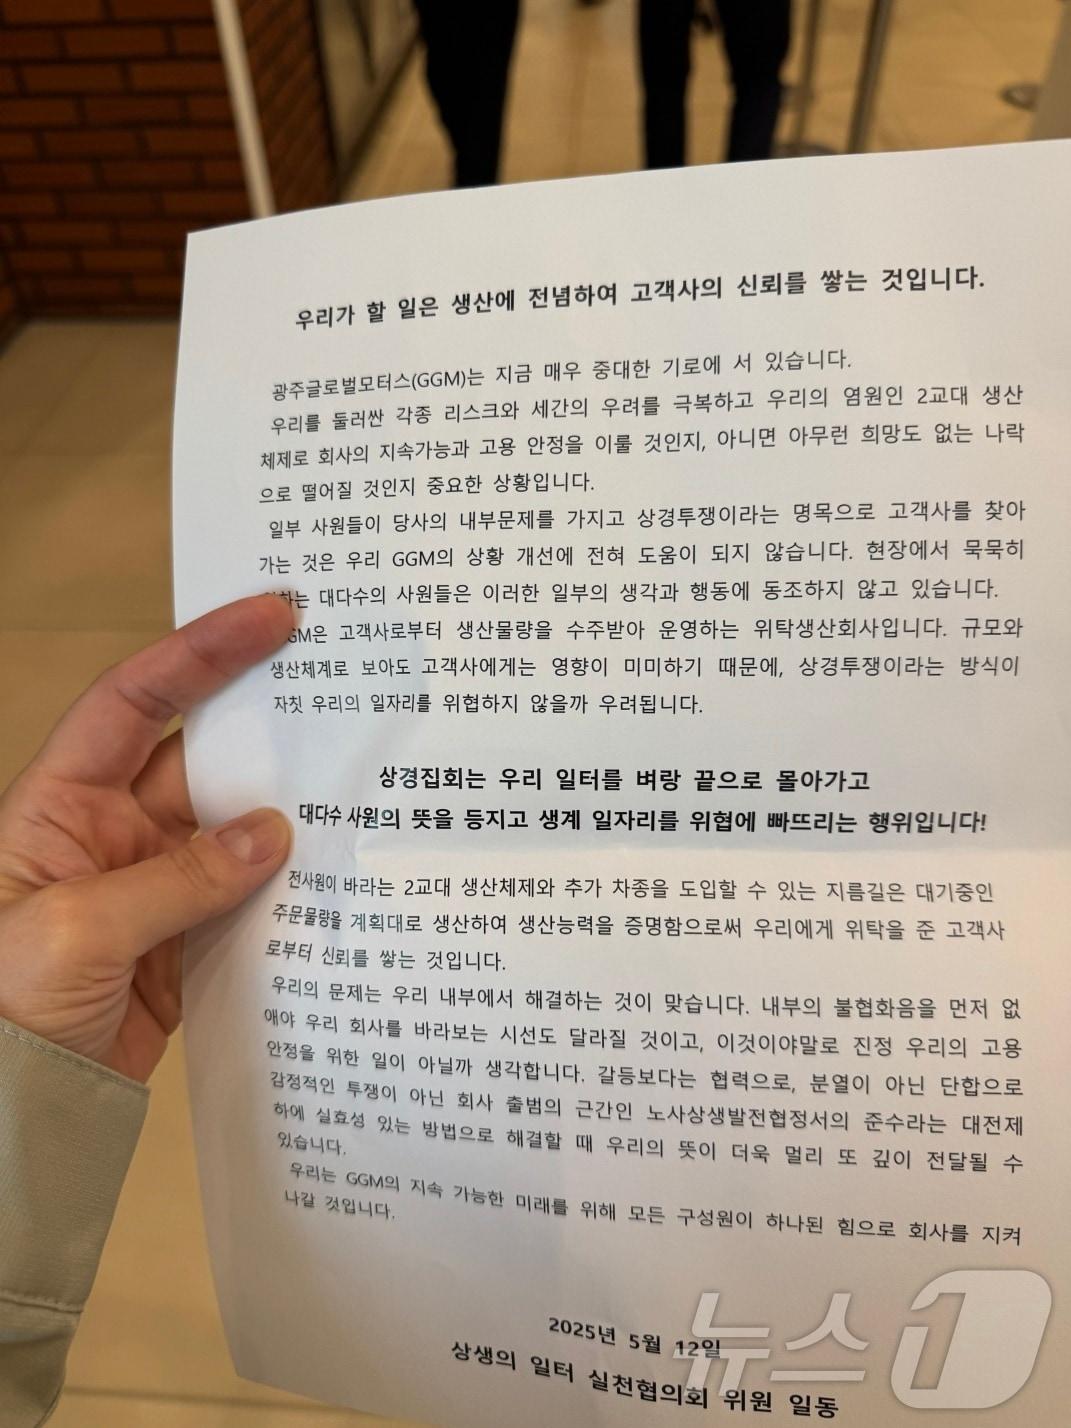 우리가 할 일은 생산에 전념하여 고객사의 신뢰를 쌓는 것입니다.
광주글로벌모터스(GGM)는 지금 매우 중대한 기로에 서 있습니다.
우리를 둘러싼 각종 리스크와 세간의 우려를 극복하고 우리의 염원인 2교대 생산
체제로 회사의 지속가능과 고용 안정을 이룰 것인지, 아니면 아무런 희망도 없는 나락
으로 떨어질 것인지 중요한 상황입니다.
일부 사원들이 당사의 내부문제를 가지고 상경투쟁이라는 명목으로 고객사를 찾아
가는 것은 우리 GGM의 상황 개선에 전혀 도움이 되지 않습니다. 현장에서 묵묵히
대다수의 사원들은 이러한 일부의 생각과 행동에 동조하지 않고 있습니다.
GM은 고객사로부터 생산물량을 수주받아 운영하는 위탁생산회사입니다. 규모와
생산체계로 보아도 고객사에게는 영향이 미미하기 때문에, 상경투쟁이라는 방식이
자칫 우리의 일자리를 위협하지 않을까 우려됩니다.
상경집회는 우리 일터를 벼랑 끝으로 몰아가고
대다수 사원의 뜻을 등지고 생계 일자리를 위협에 빠뜨리는 행위입니다!
전사원이 바라는 2교대 생산체제와 추가 차종을 도입할 수 있는 지름길은 대기중인
주문물량을 계획대로 생산하여 생산능력을 증명함으로써 우리에게 위탁을 준 고객사
로부터 신뢰를 쌓는 것입니다.
우리의 문제는 우리 내부에서 해결하는 것이 맞습니다. 내부의 불협화음을 먼저 없
애야 우리 회사를 바라보는 시선도 달라질 것이고, 이것이야말로 진정 우리의 고용
안정을 위한 일이 아닐까 생각합니다. 갈등보다는 협력으로, 분열이 아닌 단합으로
감정적인 투쟁이 아닌 회사 출범의 근간인 노사상생발전협정서의 준수라는 대전제
하에 실효성 있는 방법으로 해결할 때 우리의 뜻이 더욱 멀리 또 깊이 전달될 수
있습니다.
우리는 GGM의 지속 가능한 미래를 위해 모든 구성원이 하나된 힘으로 회사를 지켜
나갈 것입니다.
2025년 5월 12일
상생의 일터 실천협의회 위원 일동
뉴스1